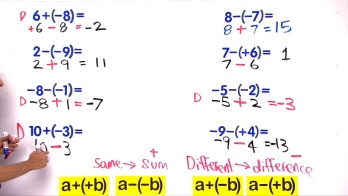 D 6+(-8)=
+6 - 8 = -2
2-(-9)=
2 + 9 = 11
-8-(-1)=
D -8 + 1 = -7
D 10+(-3)=
10 - 3
8-(-7)=
8 + 7 = 15
7-(+6)= 1
7 - 6
-5-(-2)=
D -5 + 2 = -3
-9-(+4)=
-9 - 4 = -13
Same → sum +
Different → difference -
a+(+b) a-(-b) a+(-b) a-(+b)